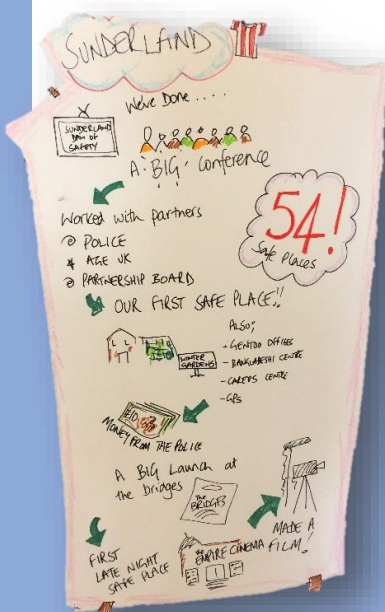 SUNDERLAND
We've Done ....
SUNDERLAND
DAY OF
SAFETY
A 'BIG' Conference
Worked with partners
POLICE
AGE UK
PARTNERSHIP BOARD
54!
Safe Places
OUR FIRST SAFE PLACE!!
WINTER
GARDENS
ALSO;
- GENTOO OFFICES
- BANGLADESHI CENTRE
- CARERS CENTRE
- GPs
£10
MONEY FROM THE POLICE
A BIG Launch at
the bridges
the
BRIDGES
MADE A
FILM!
FIRST
LATE NIGHT
SAFE PLACE
the
EMPIRE CINEMA